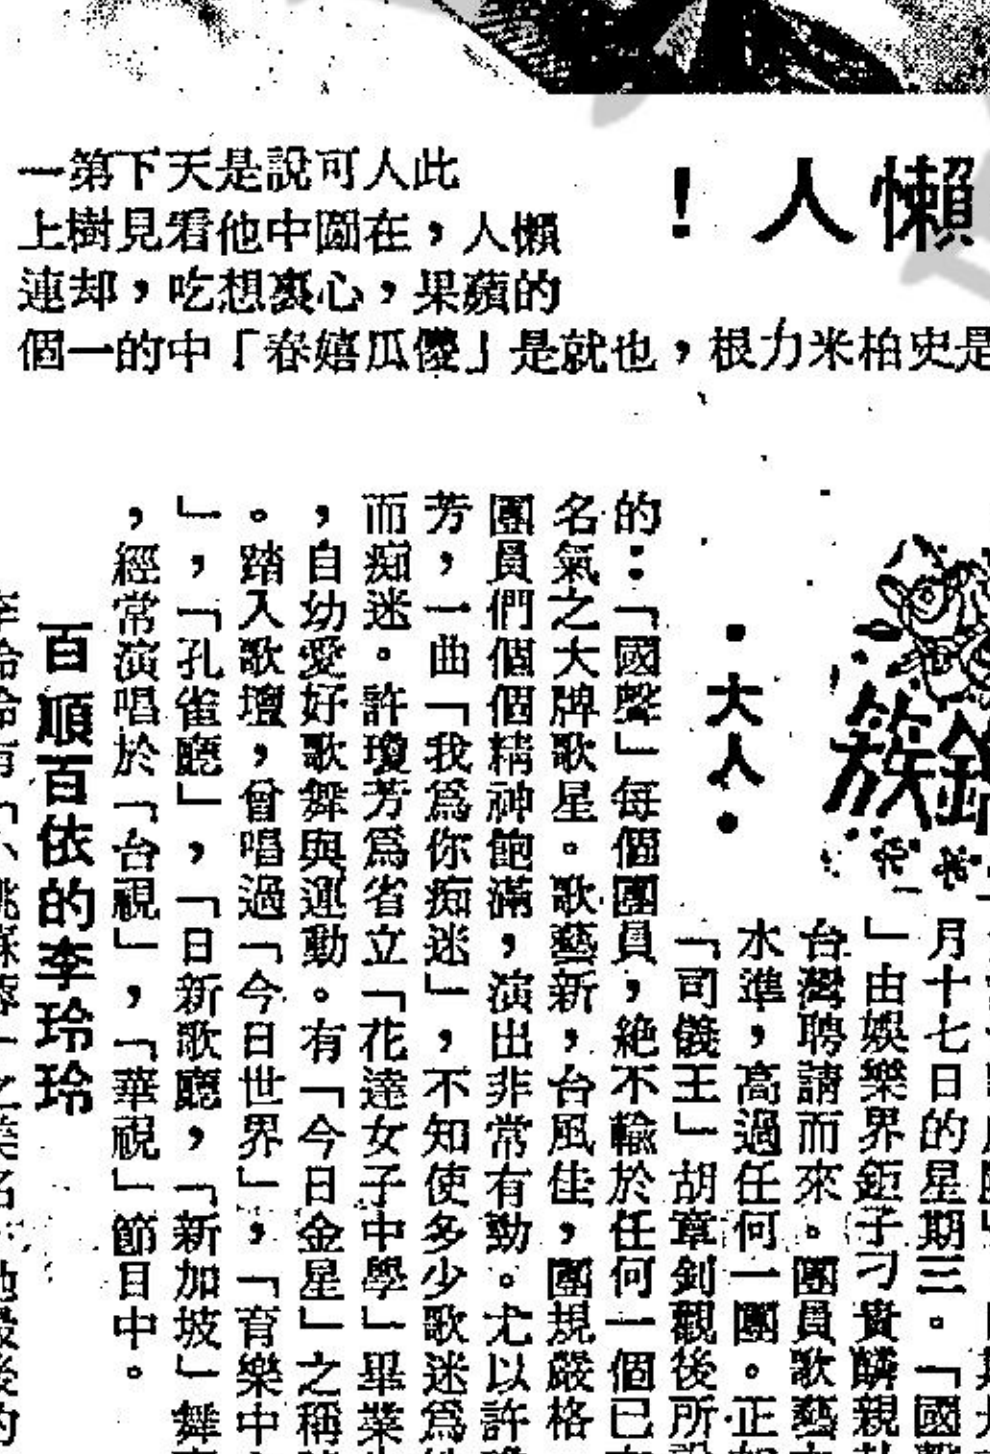 懶人！
此人可說是天下第一
懶人，在圖中他看見樹上
的蘋果，心裏想吃，却連
是史柏米力根，也就是「儍瓜嬉春」中的一個
族
・大人・
月十七日的星期三。「國
」由娛樂界鉅子刁貴麟親
台灣聘請而來。團員歌藝
水準，高過任何一團。正
「司儀王」胡章釗觀後所
的：「國聲」每個團員，絕不輸於任何一個已
名氣之大牌歌星。歌藝新，台風佳，團規嚴格
團員們個個精神飽滿，演出非常有勁。尤以許
芳，一曲「我爲你痴迷」，不知使多少歌迷爲
而痴迷。許瓊芳爲省立「花蓮女子中學」畢業
，自幼愛好歌舞與運動。有「今日金星」之稱
。踏入歌壇，曾唱過「今日世界」，「育樂中
」，「孔雀廳」，「日新歌廳，「新加坡」舞
，經常演唱於「台視」，「華視」節目中。
百順百依的李玲玲